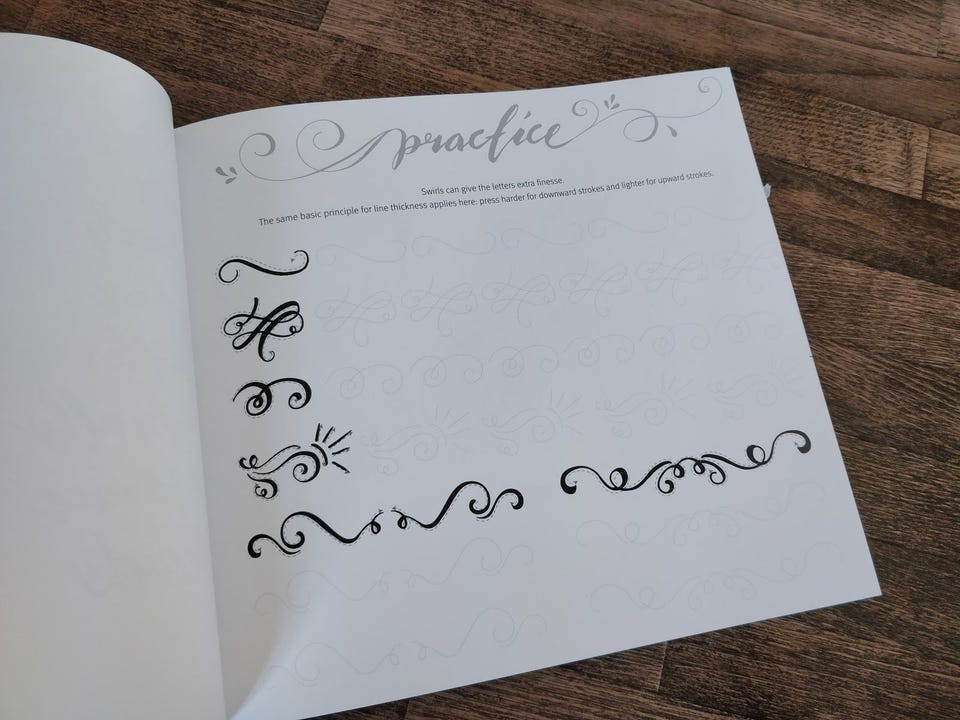 practice
Swirls can give the letters extra finesse.
The same basic principle for line thickness applies here: press harder for downward strokes and lighter for upward strokes.